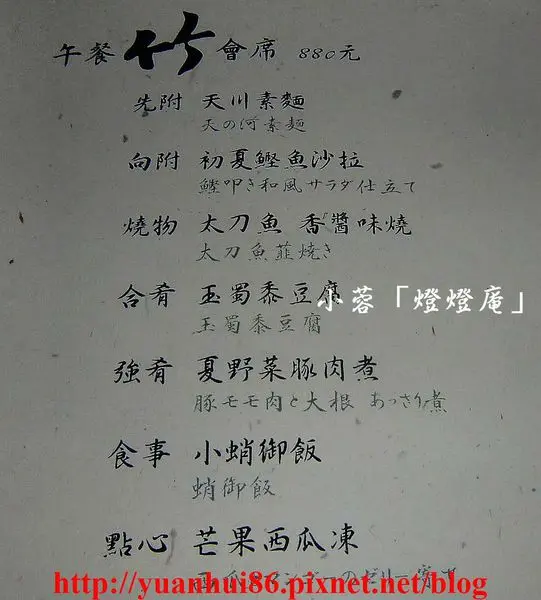 午餐 竹 會席 880元
先附 天川素麵
天の河素麺
向附 初夏鰹魚沙拉
鰹叩き和風サラダ仕立て
燒物 太刀魚 香醬味燒
太刀魚韮焼き
合肴 玉蜀黍豆腐
小蓉「燈燈庵」
玉蜀黍豆腐
強肴 夏野菜豚肉煮
豚モモ肉と大根 あっさり煮
食事 小蛸御飯
蛸御飯
點心 芒果西瓜凍
西瓜マンゴーのゼリー寄せ
http://yuanhui86.pixnet.net/blog